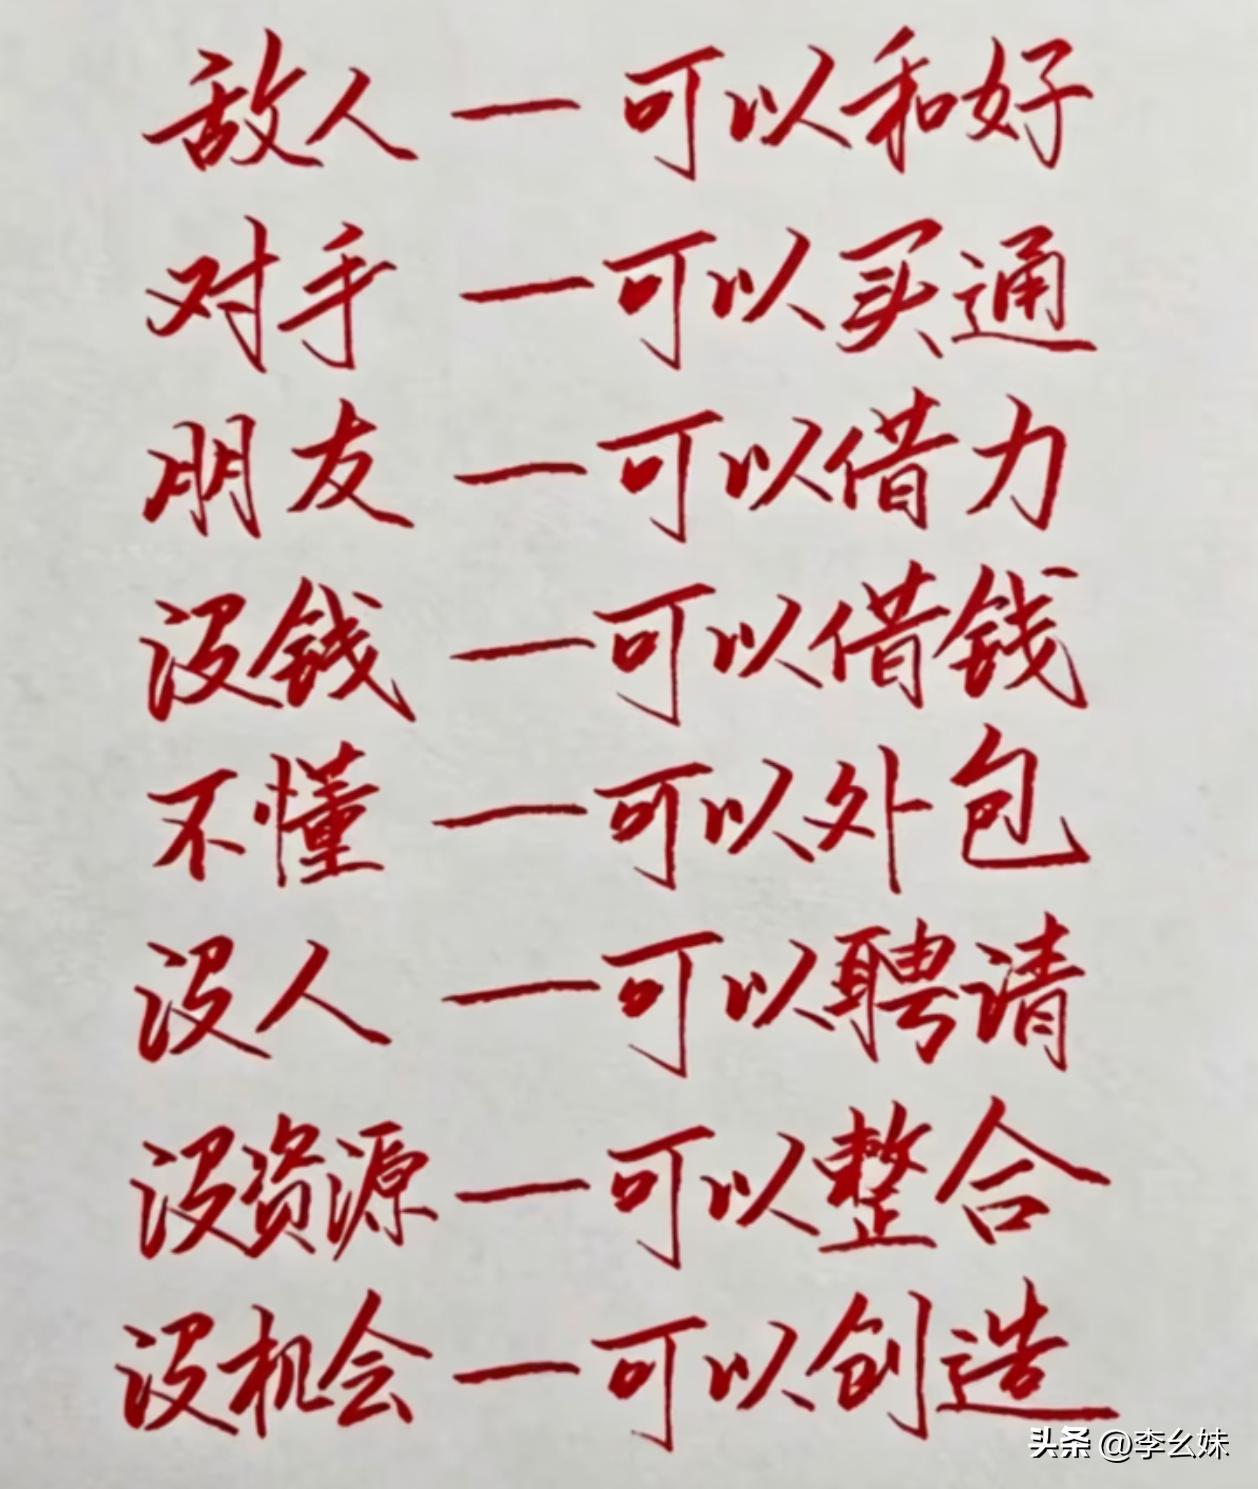 敌人一可以和好
对手一可以买通
朋友一可以借力
没钱一可以借钱
不懂一可以外包
没人一可以聘请
没资源一可以整合
没机会一可以创造
头条 @李幺妹